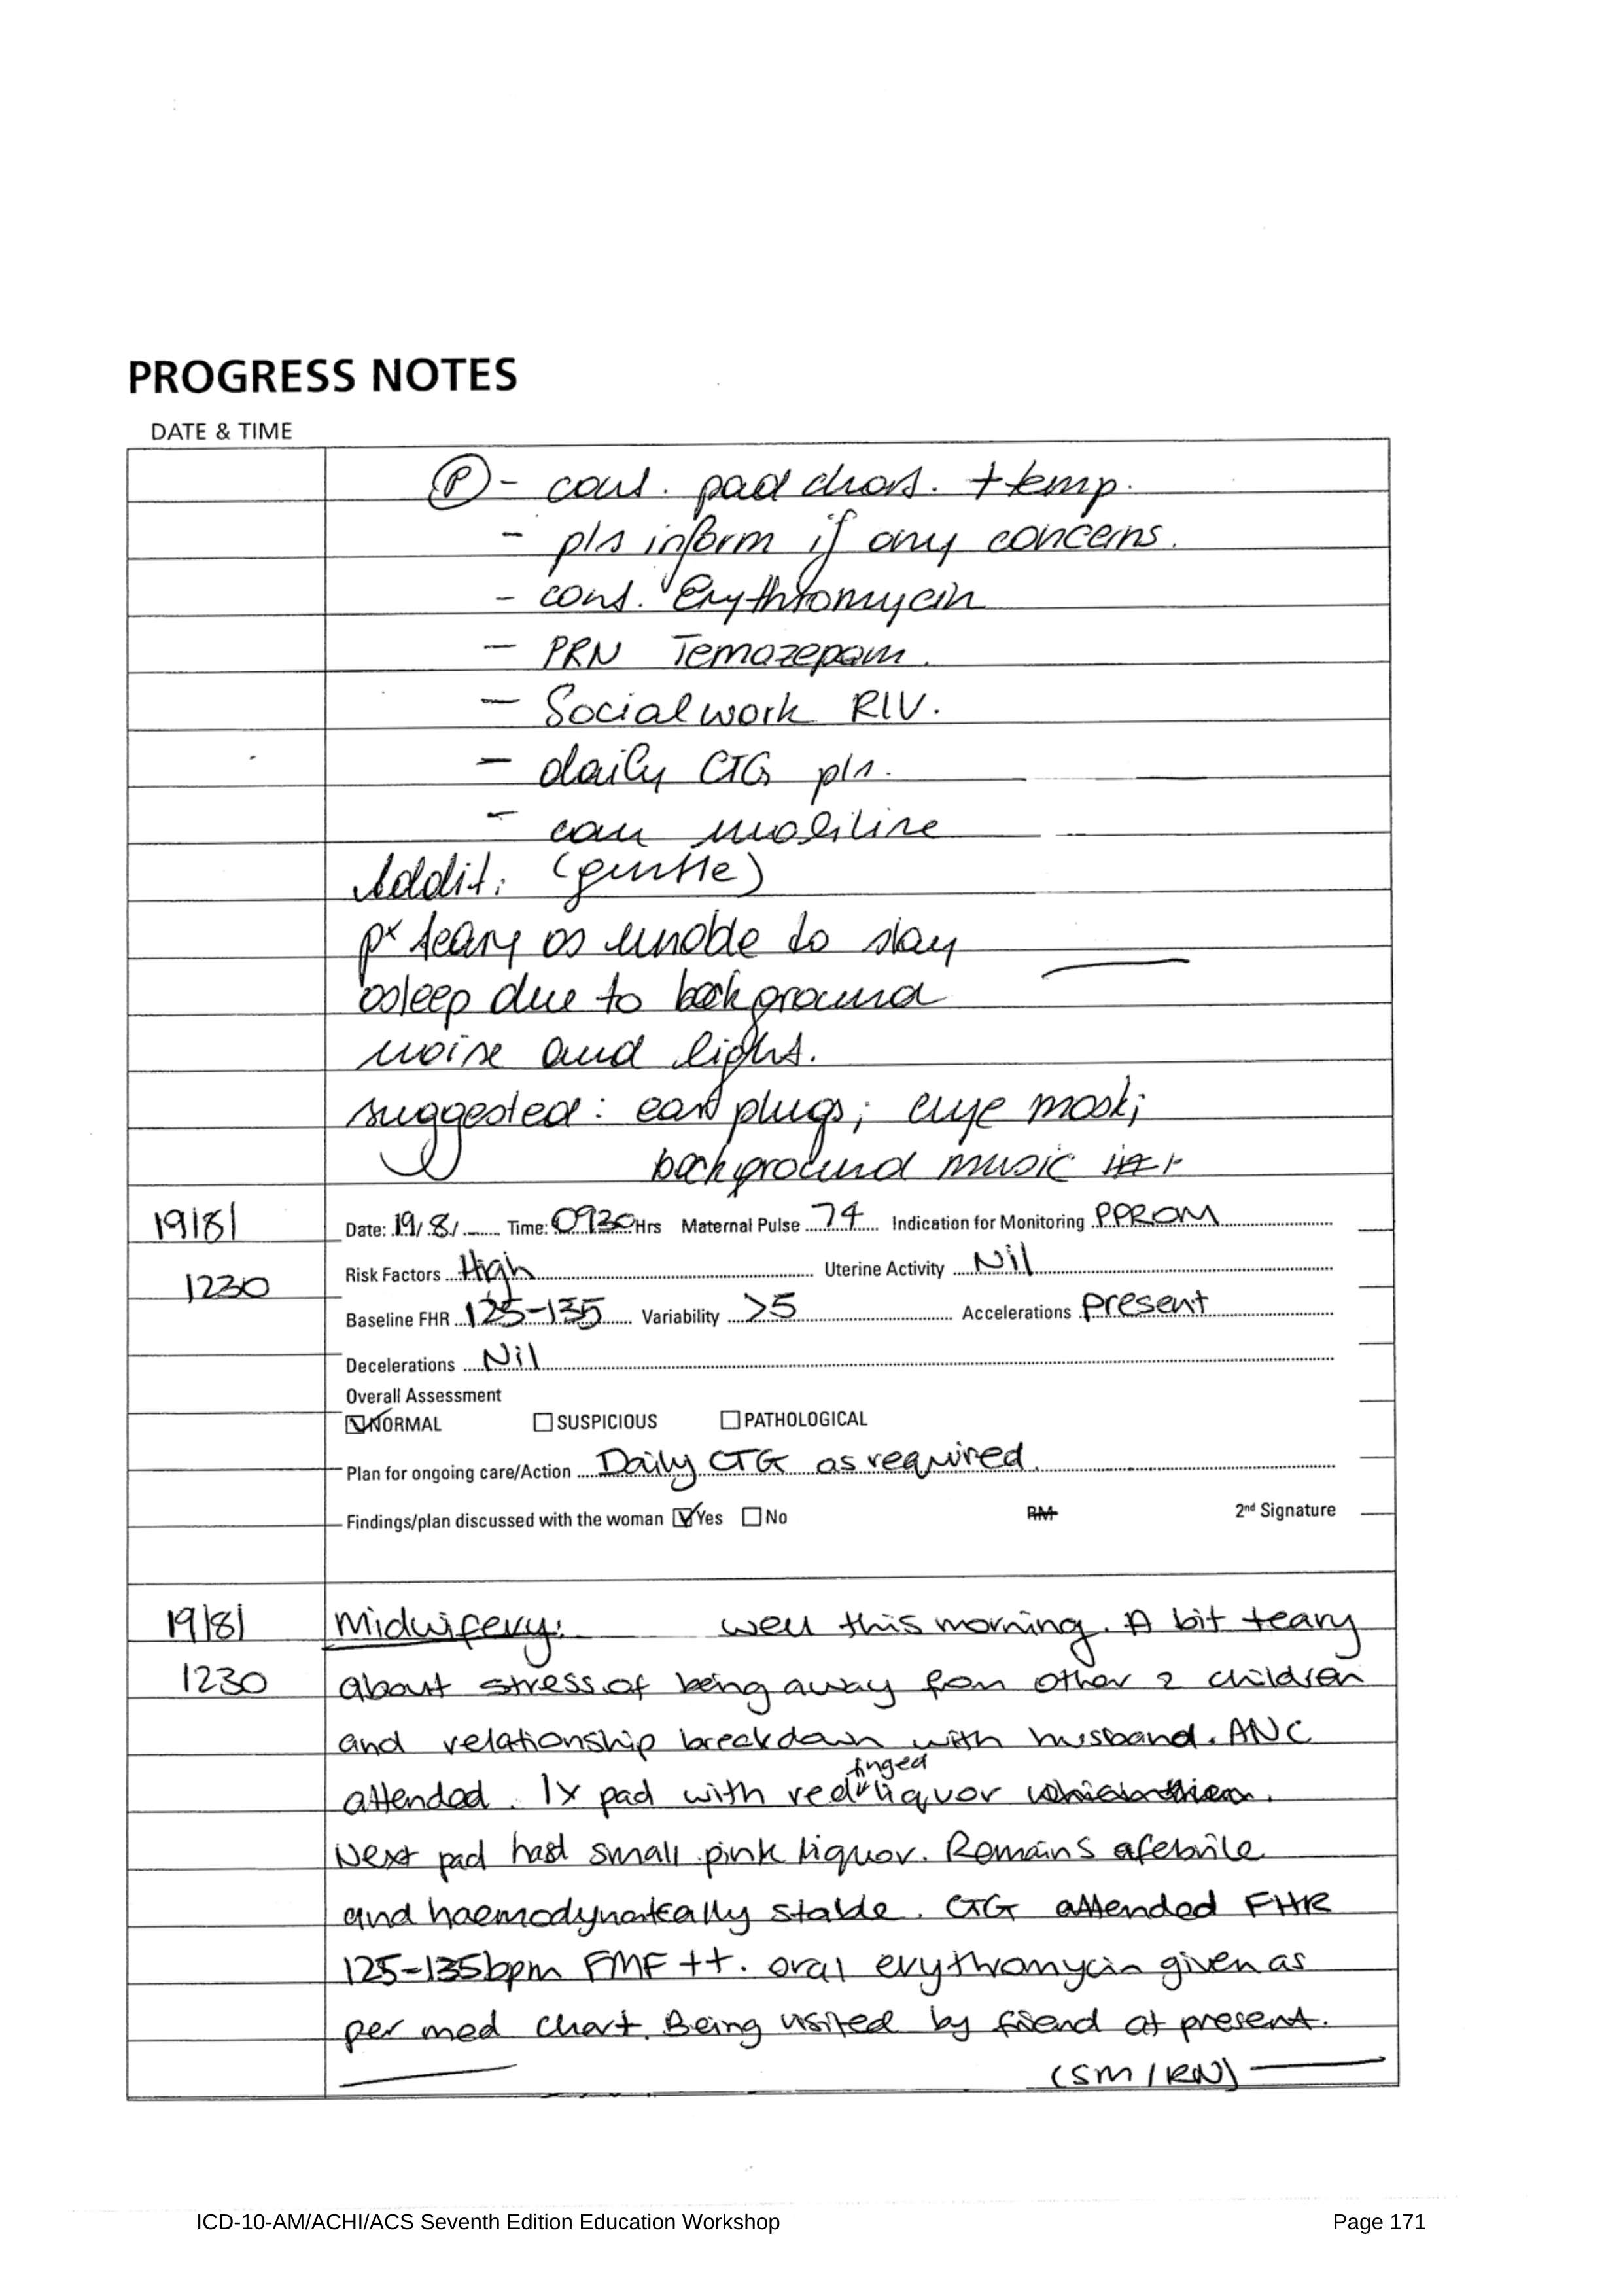 PROGRESS NOTES
DATE & TIME
Ⓟ - cont. pad chars. + temp.
- pls inform if any concerns.
- cont. Erythromycin
- PRN Temazepam.
- Social work R/V.
- daily CTG pls.
- can mobilise
Addit: (gentle)
px teary as unable to stay
asleep due to background
noise and light.
suggested: ear plugs; eye mask;
background music
19/8/ Date: 19/ 8/ ........ Time: 0930 Hrs Maternal Pulse 74 Indication for Monitoring PPROM
1230 Risk Factors High Uterine Activity Nil
Baseline FHR 125-135 Variability >5 Accelerations present
Decelerations Nil
Overall Assessment
☑ NORMAL ☐ SUSPICIOUS ☐ PATHOLOGICAL
Plan for ongoing care/Action Daily CTG as required.
Findings/plan discussed with the woman ☑ Yes ☐ No RM 2nd Signature
19/8/ Midwifery: well this morning. A bit teary
1230 about stress of being away from other 2 children
and relationship breakdown with husband. ANC
attended. 1x pad with red tinged liquor
Next pad had small pink liquor. Remains afebrile
and haemodynamically stable. CTG attended FHR
125-135bpm FMF ++. oral erythromycin given as
per med chart. Being visited by friend at present.
(SM / RN)
ICD-10-AM/ACHI/ACS Seventh Edition Education Workshop Page 171